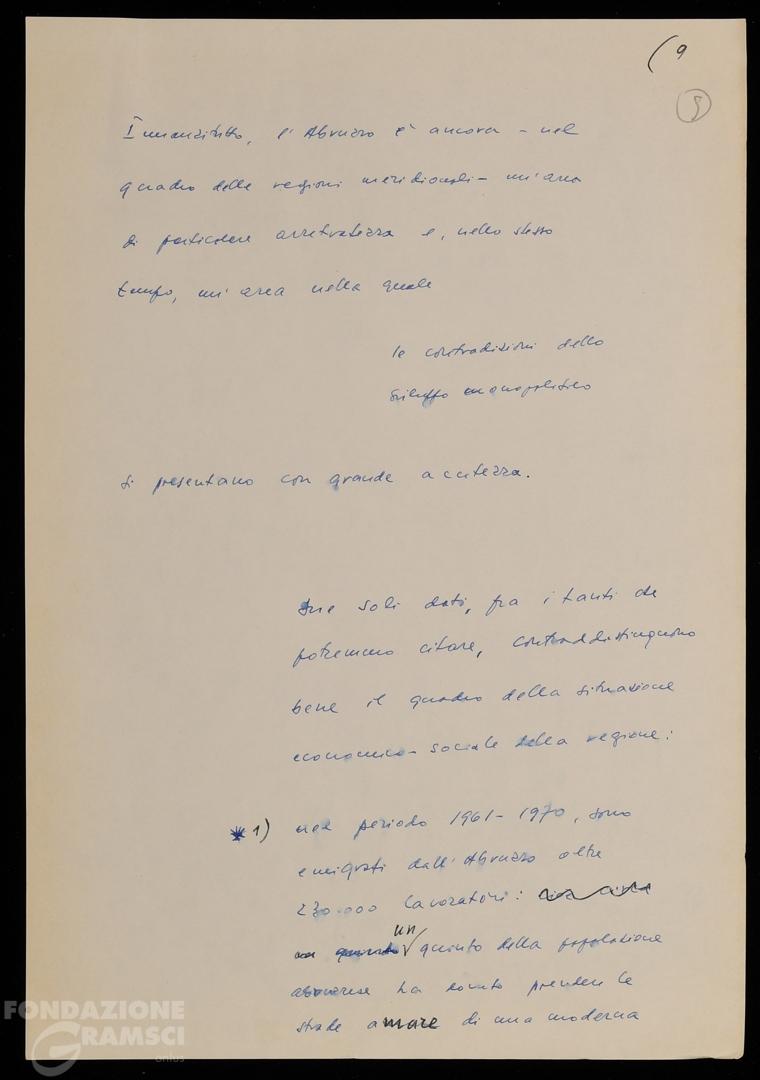 (9
5
Innanzitutto, l'Abruzzo è ancora – nel
quadro delle regioni meridionali – un'area
di particolare arretratezza e, nello stesso
tempo, un'area nella quale
le contraddizioni dello
sviluppo monopolistico
si presentano con grande acutezza.
Due soli dati, fra i tanti che
potremmo citare, contraddistinguono
bene il quadro della situazione
economico-sociale della regione:
* 1) nel periodo 1961-1970, sono
emigrati dall'Abruzzo oltre
230.000 lavoratori:
un
quinto della popolazione
abruzzese ha dovuto prendere le
strade amare di una moderna
FONDAZIONE
GRAMSCI
onlus